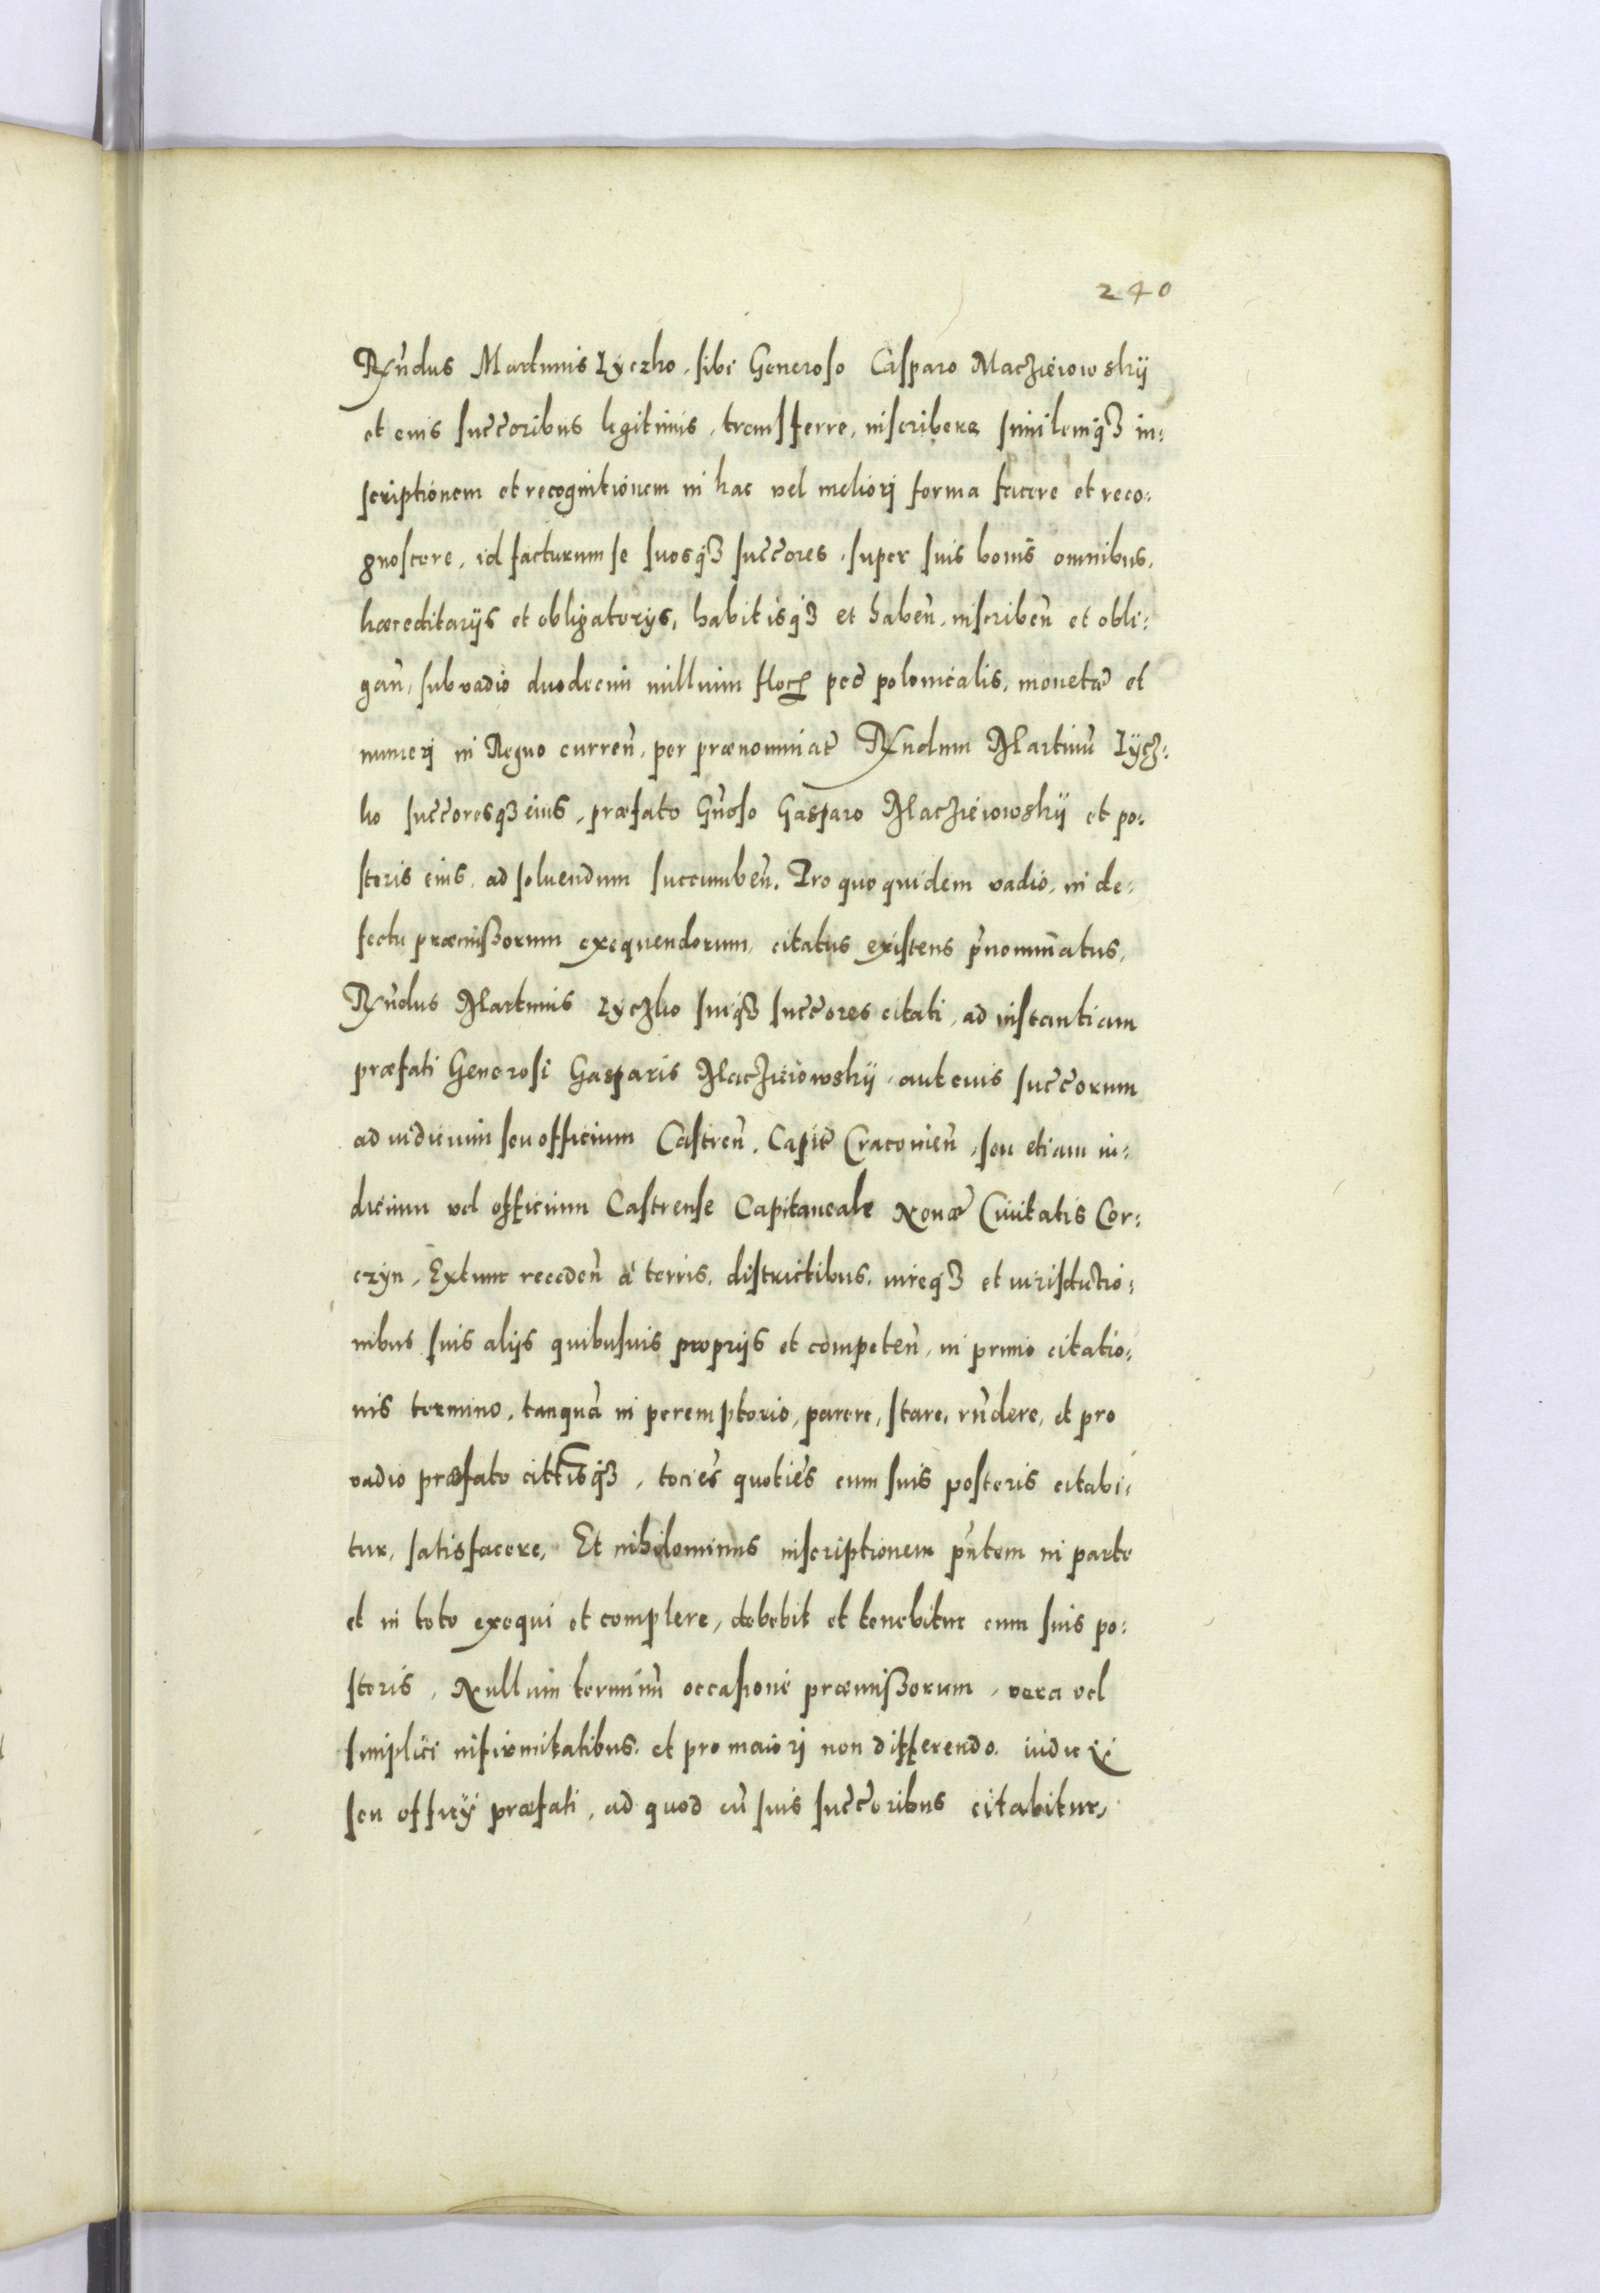 240
Rñdus Martinus Lyczko, sibi Generoso Casparo Maczieiowskij
et eius succoribus legitimis, transferre, inscribere similemq3 in:
scriptionem et recognitionem in hac vel meliorj forma facere et reco:
gnoscere, id facturum se suosq3 succores, super suis bonis omnibus,
hæreditarijs et obligatorijs, habitisq3 et habeñ, inscribeñ et obli:
gañ, sub vadio duodecim millium floꝝ pec̃ polonicalis, monetæ et
numerj in Regno curreñ, per prænominat̃ Rñdum Martinũ Lÿcz:
ko succoresq3 eius, præfato Gñoso Gasparo Maczieiowskij et po:
steris eius, ad soluendum succumbeñ. Pro quo quidem vadio, in de:
fectu præmißorum exequendorum, citatus existens p̃nominatus,
Rñdus Martinus Lyczko suiq3 succores citati, ad instantiam
præfati Generosi Gasparis Maczieiowskij, aut eius succorum
ad iudicium seu officium Castreñ, Capit̃ Cracouieñ, seu etiam iu:
dicium vel officium Castrense Capitaneale Nouæ Ciuitatis Cor:
czyn, Extunc recedeñ à terris, districtibus, iureq3 et iurisdictio:
nibus suis alijs quibusuis proprijs et competeñ, in primo citatio:
nis termino, tanquã in peremptorio, parere, stare, rñdere, et pro
vadio præfato cittisq3, tocies quoties cum suis posteris citabi:
tur, satisfacere, Et nihilominus inscriptionem pñtem in parte
et in toto exequi et complere, debebit et tenebitur cum suis po:
steris, Nullum terminũ occasione præmißorum, vera vel
simplici infirmitatibus, et pro maiorj non differendo, iudicij
seu officij præfati, ad quod cũ suis succoribus citabitur,